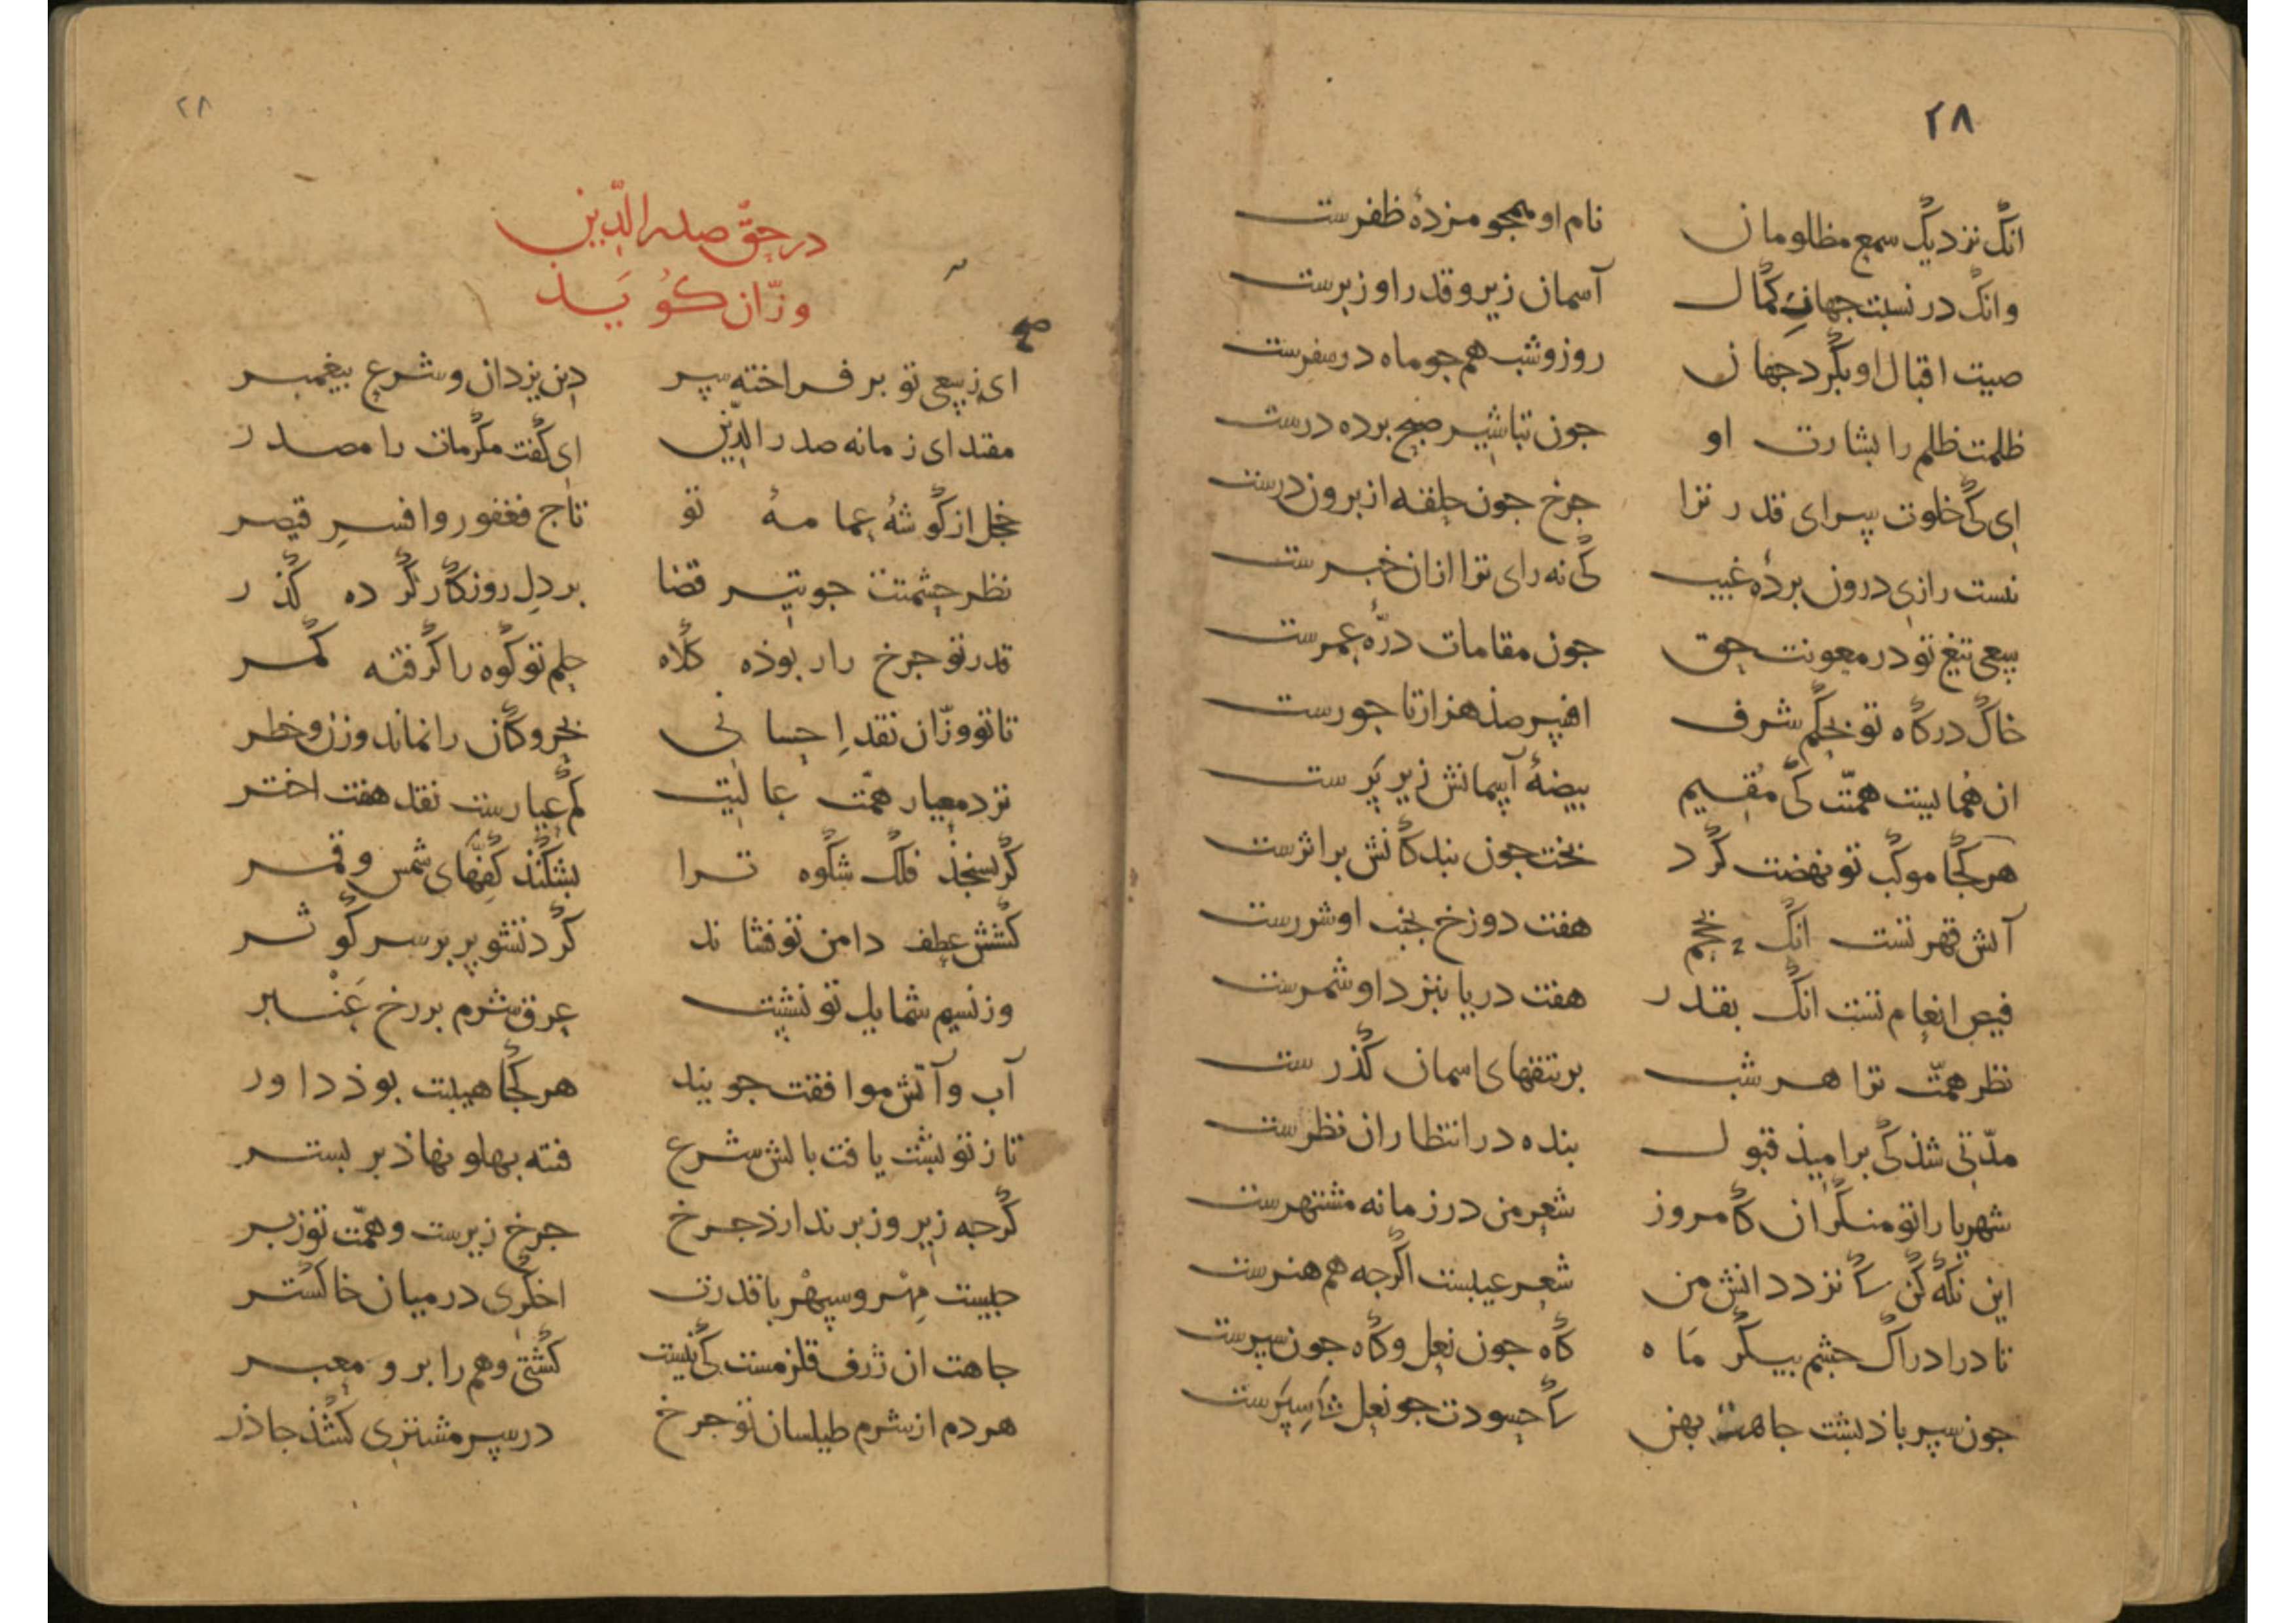 ۲۸
انک نزدیک سمع مظلومان نام او همجو مزدهٔ ظفرست
وانک در نسبت جهان کمال آسمان زیر و قدر او زبرست
صیت اقبال او بکرد جهان روز و شب هم جو ماه در سفرست
ظلمت ظلم را بشارت او جون تباشیر صبح برده درست
ای کی خلوت سرای قدر ترا جرخ جون حلقه از برون درست
نیست رازی درون بردهٔ غیب کی نه رای ترا ازان خبرست
سعی تیغ تو در معونت حق جون مقامات درّهٔ عمرست
خاک درکاه تو بحکم شرف افسر صذ هزار تاجورست
ان همایست همّتت کی مقیم بیضهٔ آسمانش زیر پَرست
هر کجا موکب تو نهضت کرد بخت جون بندکانش بر اثرست
آتش قهر تست انک هفت دوزخ بجنب او شررست
فیض انعام تست انک بقدر هفت دریا بنزد او شمرست
نظر همّت ترا هر شب بر تتقهای اسمان کذرست
مدّتی شذ کی بر امیذ قبول بنده در انتظار ان نظرست
شهریارا تو منکر ان کامروز شعر من در زمانه مشتهرست
این نکه کن کا نزد دانش من شعر عیبست اکرجه هم هنرست
تا در ادراک جشم بیکر مَاه کاه جون نعل و کاه جون سپرست
جون سپر باذ پشت جاهت بهن کا حسودت جو نعل سپرست
۲۸
در حقّ صدر الدّین
وزّان کوُیَـذ
ای ز سعی تو بر فراخته سر دین یزدان و شرع بیغمبر
مقتدای زمانه صدر الدّین ای کفت مکرمات را مصدر
خجل از کوشهٔ عمامهٔ تو تاج فغفور و افسرِ قیصر
نظر حشمتت جو تیر قضا بر دلِ روزکار کرده کذر
قدر تو جرخ را ربوذه کلاه حلم تو کوه را کرفته کمر
تا تو وزّان نقد اِحسانی بحر و کان را نماند وزن و خطر
نزد معیار همّت عالیت کم عیارست نقد هفت اختر
کر بسنجذ فلک شکوه ترا بشکنذ کفّهای شمس و قمر
کشش عطف دامن تو فشاند کرد تشویر بر سر کوثر
وز نسیم شمایل تو نشست عرق شرم بر رخ عَنْبر
آب و آتش موافقت جویند هر کجا هیبتت بوذ داور
تا ز تو پشت یافت بالش شرع فتنه بهلو نهاذ بر بستر
کرجه زیر و زبر ندارذ جرخ جرخ زیرست و همّت تو زبر
جیست مِهْر و سپهْر با قدرت اخکری در میان خاکستر
جاهت ان ژرف قلزمست کی نیست کشتی وهم را بر و معبر
هر دم از شرم طیلسان تو جرخ در سر مشتری کشذ جاذر